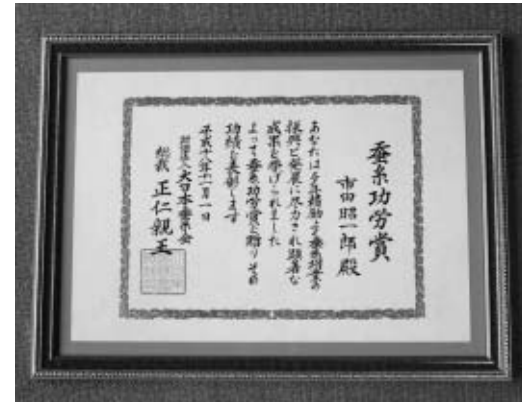 蚕糸功労賞
市田昭一郎殿
あなたは多年精励よく蚕糸絹業の
振興と発展に尽力され顕著な
成果を挙げられました
よって蚕糸功労賞を贈りその
功績を表彰します
平成十八年十一月一日
財団法人大日本蚕糸会
総裁正仁親王